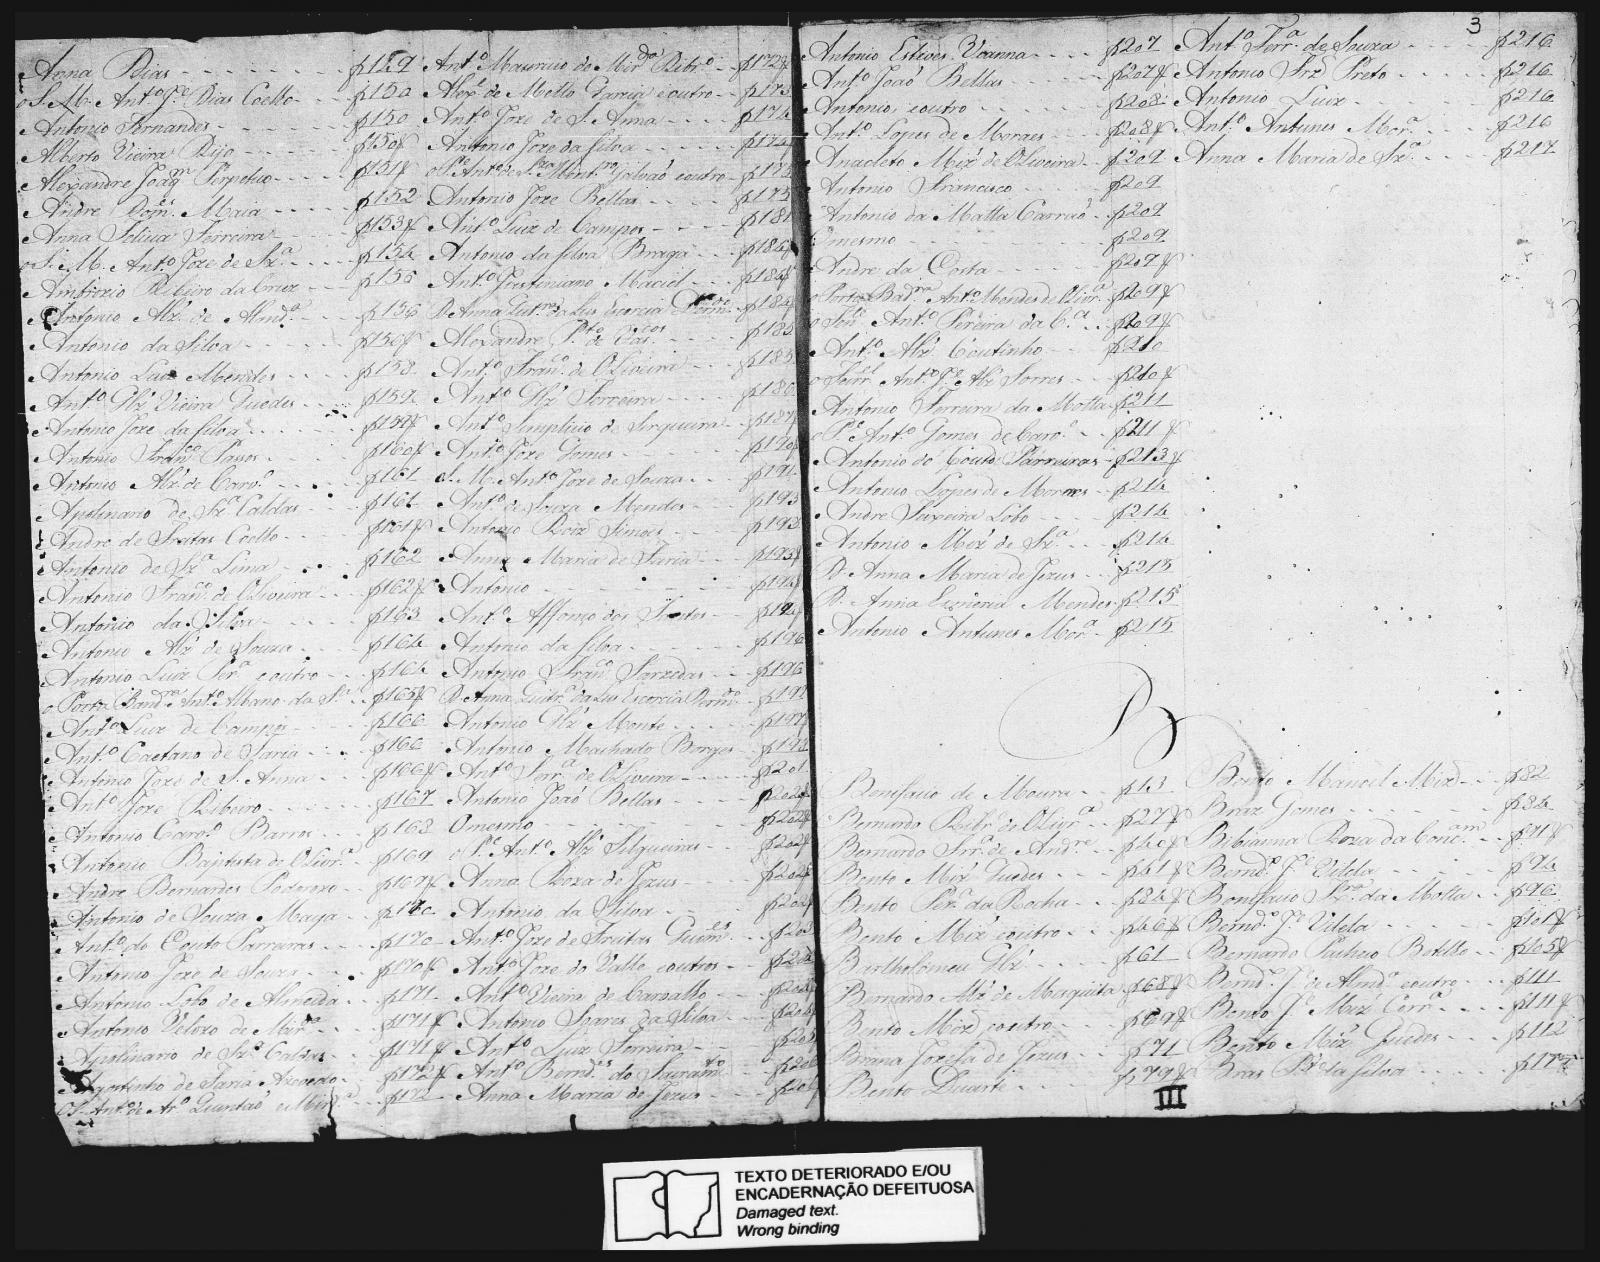 Anna Dias - - - - - - - f129
o S. M. Ant.º J.e Dias Coelho - - - f150
Antonio Fernandes - - - - f150
Alberto Vieira Rijo - - - - f150f
Alexandre Joaq.m Perpetuo - - - - f151f
Andre Dom.s Maia - - - - f152
Anna Felicia Ferreira - - - - f153f
o S. M. Ant.º Joze de Sz.a - - - f154
Ambrozio Ribeiro da Cruz - - - f155
Antonio Alz. de Almd.a - - - f156
Antonio da Silva - - - - f156f
Antonio Luiz Mendes - - - - f158
Ant.º Glz Vieira Guedes - - - f159
Antonio Joze da Silva - - - - f159f
Antonio Fran.co Passos - - - f160f
Antonio Alz de Carv.º - - - f161
Apolinario de Sz.a Caldas - - - f161
Andre de Freitas Coelho - - - f161f
Antonio de Sz.a Lima - - - f162
Antonio Fran.co de Oliveira - - - f162f
Antonio da Silva - - - - f163
Antonio Alz de Souza - - - f164
Antonio Luiz Per.a e outro - - - f164
o Porta Band.ra Ant.º Albano da S.a - - f165f
Ant.º Luiz de Campos - - - f166
Ant.º Caetano de Faria - - - f166
Antonio Joze de S. Anna - - - f166f
Ant.º Joze Ribeiro - - - - f167
Antonio Carv.º Barros - - - f168
Antonio Baptista de Olivr.a - - f169
Andre Bernardes Poderozo - - - f169f
Antonio de Souza Maya - - f170
Ant.º do Couto Parreiras - - - f170
Antonio Joze de Souza - - - f170f
Antonio Lobo de Almeida - - - f171
Antonio Velozo de Mir.a - - - f171f
Apolinario de Sz.a Caldas - - - f171f
Agostinho de Faria Azevedo - - f172f
Ant.º de Ar.º Quintaó - - f172
Ant.º Mauricio do Mir.do Ribr.º - - f172f
Alex.e de Mello Garcia e outro - - f173
Ant.º Joze de S. Anna - - - f174
Antonio Joze da Silva - - - f174
Galvaó e outro - - f174
Antonio Joze Bellas - - - f175
Ant.º Luiz de Campos - - - f181
Antonio da Silva Braga - - - f184
Ant.º Justiniano Maciel - - - f184f
D. Anna Gut.res da Luz Escorcia - - f184
Alexandre P.to de Vas.cos - - - f185
Ant.º Fran.co de Oliveira - - - f185
Ant.º Glz Ferreira - - - f186
Ant.º Simplicio de Sirqueira - - f187f
Ant.º Joze Gomes - - - f190
S. M. Ant.º Joze de Souza - - f191
Ant.º de Souza Mendes - - - f193
Antonio Roiz Simoes - - - f193
Anna Maria de Faria - - f193f
Antonio - - - - - - f194f
Ant.º Affonço dos Santos - - f194
Antonio da Silva - - - - f196
Antonio Fran.co Sarzedas - - - f196
D. Anna Guitr.s da Luz Escorcia - - f197
Antonio Glz Monte - - - f197
Antonio Machado Borges - - f198
Ant.º Ferr.a de Oliveira - - - f201
Antonio Joaó Bellas - - - f202f
O mesmo - - - - - f202f
o P.e Ant.º Alz Silqueiras - - - f202f
Anna Roza de Jezus - - - f202f
Antonio da Silva - - - f202f
Ant.º Joze de Freitas Guim.es - - f203
Ant.º Joze do Valle e outros - - f203
Ant.º Vieira de Carvalho - - f204
Antonio Soares da Silva - - - f204
Ant.º Luiz Ferreira - - - f205
Ant.º Bernd.es do Sacram.to - - f206
Anna Maria de Jezus - - - f206
3
Antonio Esteves Vianna - - - f207
Ant.º Joaó Bellas - - - f207f
Antonio e outro - - - f208
Ant.º Lopes de Moraes - - - f208f
Anacleto Miz de Oliveira - - f209
Antonio Francisco - - - f209
Antonio da Matta Carraó - - f209
O mesmo - - - - - f209
Andre da Costa - - - - f209f
o Porta Bad.ra Ant.º Mendes de Olivr.a f209f
Ant.º Pereira da C.a - - f209f
Ant.º Alz Coutinho - - - f210
Ant.º J.e Alz Torres - - f210f
Antonio Ferreira da Motta - - f211
o P.e Ant.º Gomes de Carv.º - - f211f
Antonio do Couto Parreiras - - f213f
Antonio Lopes de Moraes - - f214
Andre Teixeira Lobo - - - f214
Antonio Miz de Sz.a - - - f214
D. Anna Maria de Jezus - - - f215
D. Anna Mendes - f215
Antonio Antunes Mor.a - f215
Ant.º Ferr.a de Souza - - - - f216
Antonio Frz Preto - - - - f216
Antonio Luiz - - - - f216
Ant.º Antunes Mor.a - - - f216
Anna Maria de Sz.a - - - - f217
B
Bonifacio de Moura - - - f13
Bernardo Ribr.º de Olivr.a - - f27f
Bernardo Frr.a de Andr.e - - f40f
Bento Miz Guedes - - - f41f
Bento Per.a da Rocha - - - f34f
Bento Miz e outro - - - f46f
Bartholomeu Glz - - - - f61
Bernardo Alz de Mesquita - f68f
Bento Miz e outro - - - f69f
Brana Jozefa de Jezus - - - f71
Bento Duarte - - - f79f
Bento Manoel Miz - - - f82
Braz Gomes - - - - - f84
Bibianna Roza da Conc.am - - f91f
Bernd.º J.e Vilela - - - - f94
Bonifacio Fr.a da Motta - - f96
Bernd.º J.e Vilela - - - - f101f
Bernardo Pacheco Botelho - - f105f
Bernd.º J.e de Almd.a e outro - - f111
Bento J.e Miz Cerr.a - - - f111f
Bento Miz Guedes - - - f112
Bras Pr.a da Silva - - - f175
III
TEXTO DETERIORADO E/OU
ENCADERNAÇÃO DEFEITUOSA
Damaged text.
Wrong binding